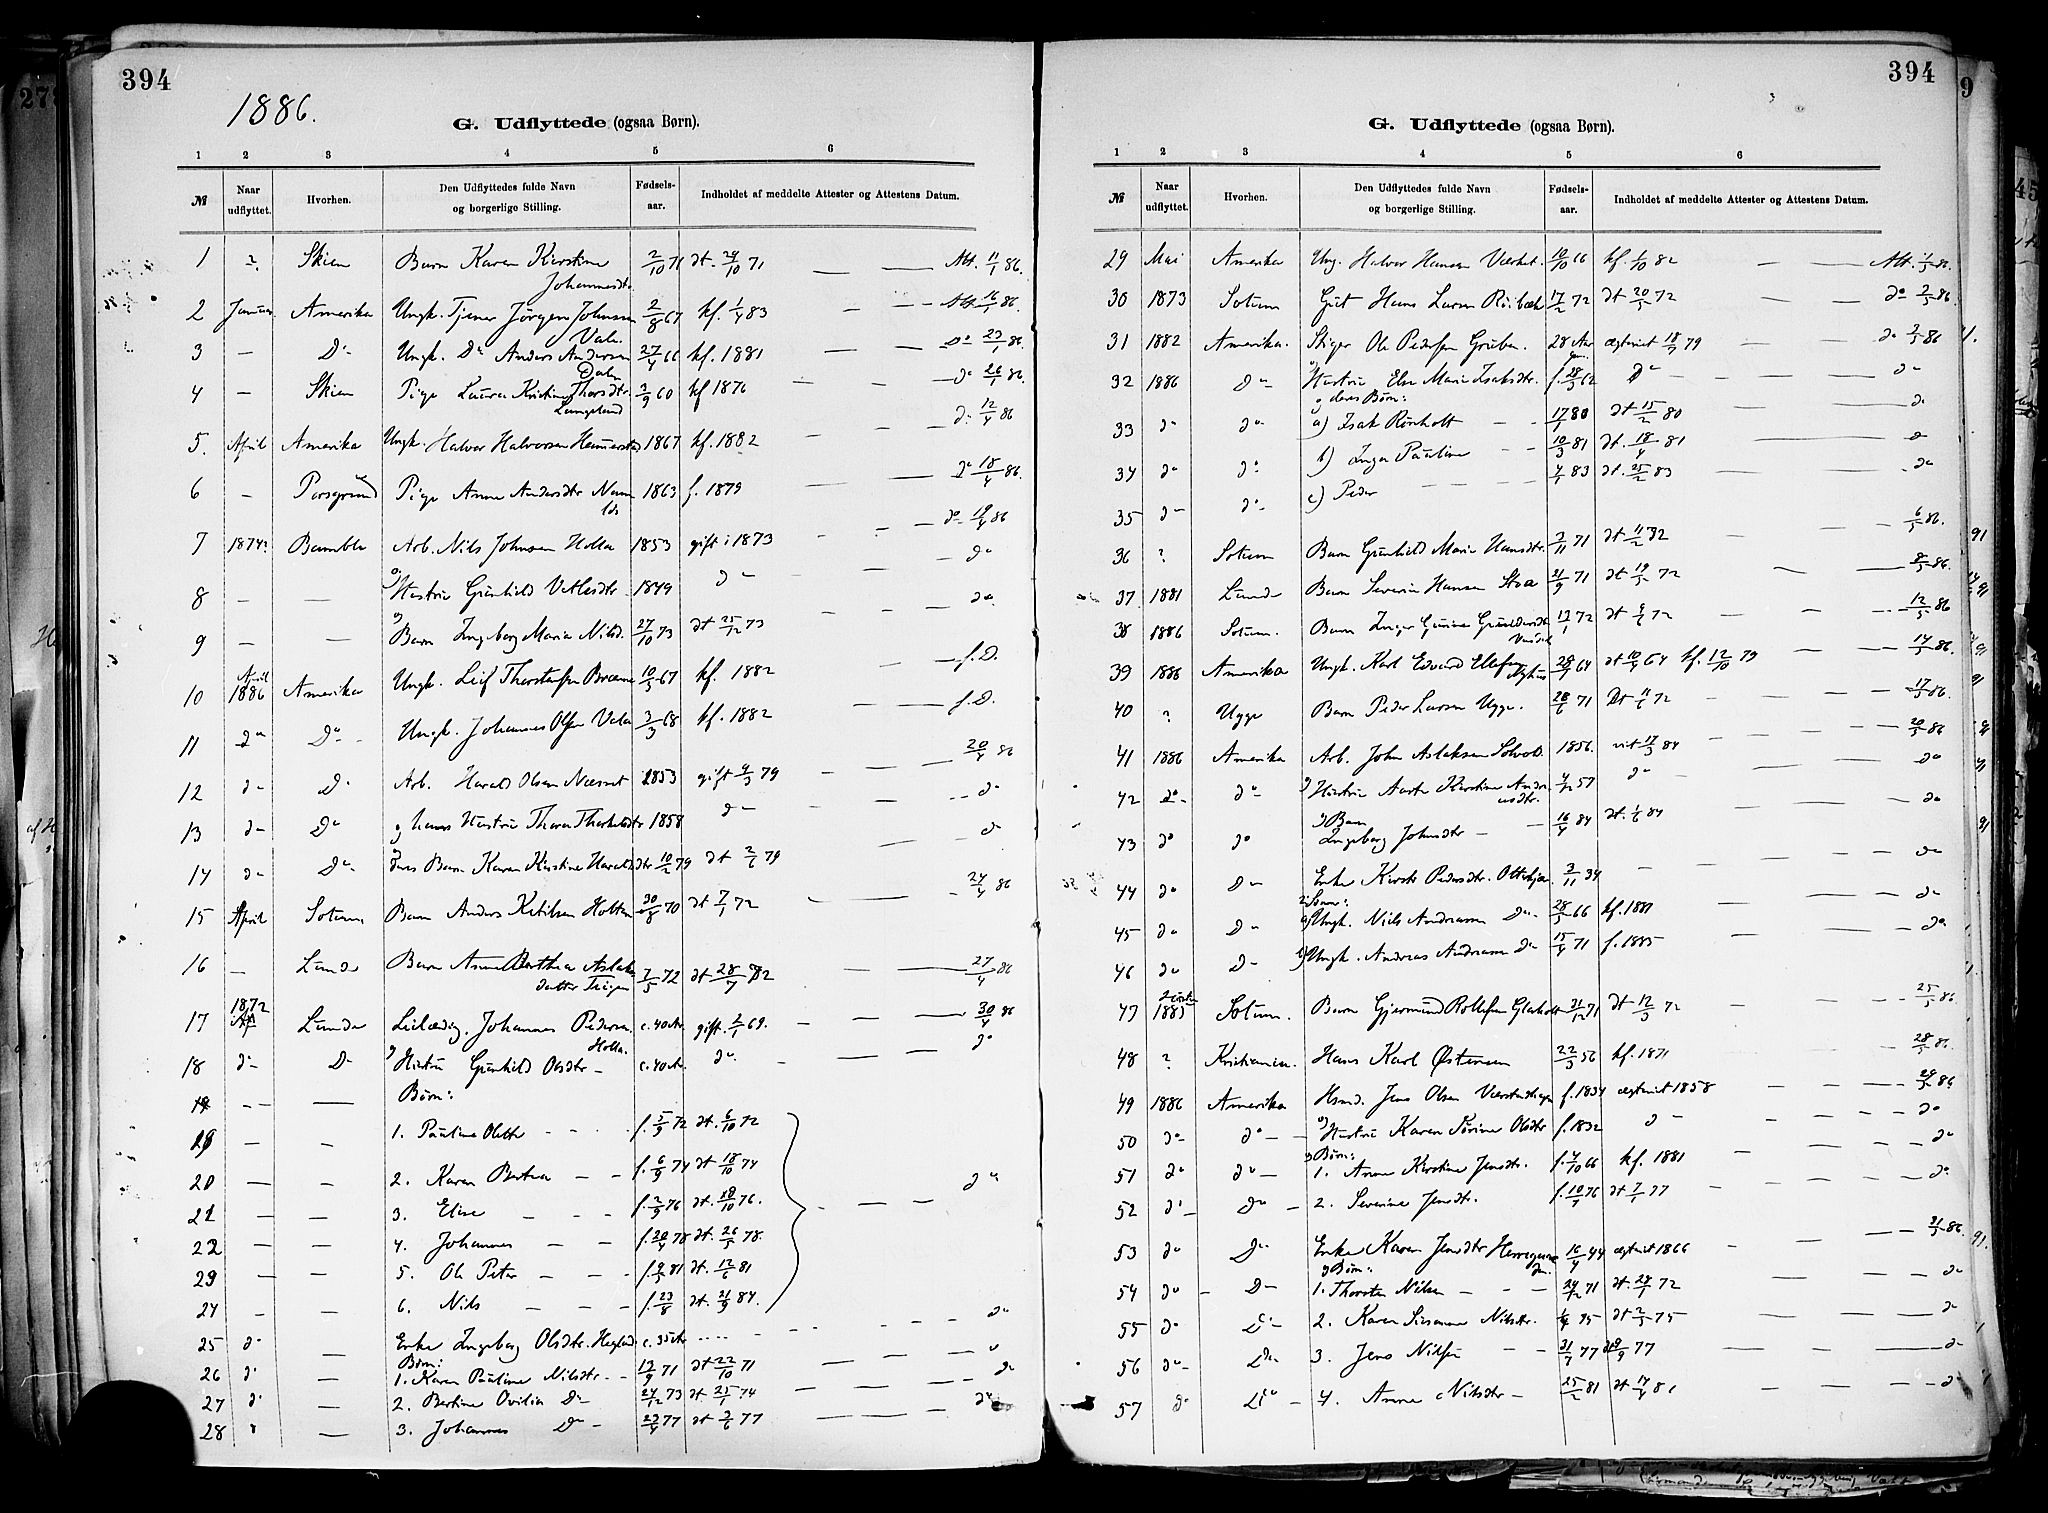 394
1886.
G. Udflyttede (ogsaa Børn).
1 2 3 4 5 6
№ Naar udflyttet. Hvorhen. Den Udflyttedes fulde Navn og borgerlige Stilling. Fødsels-aar. Indholdet af meddelte Attester og Attestens Datum.
1 ? Skien Barn Karen Kirstine Johannesdtr 2/10 71 dt. 29/10 71 — — Att. 11/1 86.
2 Januar Amerika Ungk. Tjener Jörgen Johnsen Vala 2/8 67 kf. 1/4 83 — — Att. 16/1 86.
3 — Do Ungk. Do Anders Andersen Dalen 27/4 66 kf. 1881 — — Do 23/1 86.
4 — Skien Pige Laura Kristine Thorsdtr. Lungeland 3/9 60 kf 1876 — — do 26/1 86.
5. April Amerika Ungk. Halvor Halvorsen 1867 kf. 1882 — — do 12/4 86
6 — Porsgrund Pige Anne Andersdtr 1863 f. 1879 — — do 18/4 86.
7 1874? Bamble Arb. Nils Johnsen Holla 1853 gift i 1873 — — do 19/4 86
8 — — og Hustru Gunhild Vetlesdtr 1849 do — — do
9 — — og Barn Ingeborg Maria Nilsd. 27/10 73 dt 25/12 73 — — do.
10 April 1886 Amerika Ungk. Leif Thorstensen 10/3 67 kf. 1882 — f. D.
11 do Do Ungk. Johannes Olsen Vala 3/3 68 kf. 1882 — f. D.
12 do Do Arb. Harald Olsen Næsset 1853 gift 9/3 79 — — 20/4 86
13 do Do og hans Hustru Thora Thorkildsdtr 1858 do — — do
14 do Do og deres Barn Karen Kirstine Haraldsdtr 10/2 79 dt 2/6 79 — — do
15 April Sotum Barn Anders Ketilsen Holten 30/8 70 dt 7/1 72 — — 24/4 86
16 — Lunde Barn Anne Berthea Aslaksdatter 7/5 72 dt 28/7 72 — — 27/4 86
17 1872 Lunde Leilænding Johannes Pedersen Holla. c. 40 Aar gift. 2/1 69. — — 30/4 86
18 do Do og Hustru Gunhild Olsdtr — c. 40 Aar do. — — do
— — Børn:
19 — — 1. Pauline Olette — f. 5/9 72 dt. 6/10 72
20 — — 2. Karen Bertea — f. 6/9 74 dt 18/10 74 — do
21 — — 3. Elise — f. 2/9 76 dt. 18/10 76.
22 — — 4. Johannes — f. 20/4 78 dt. 26/5 78.
23 — — 5. Ole Peter — f. 9/5 81 dt. 12/6 81
24 — — 6. Nils — f. 23/8 dt. 21/9 84.
25 do — Enke Ingeborg Olsdtr. c. 35 Aar — — do
Børn:
26 do — 1. Karen Pauline Nilsdtr — 13/9 71 dt 22/10 71 — do
27 do — 2. Bertine Ovilia Do 24/12 73 dt. 25/1 74 — do
28 do — 3. Johannes Do — 23/4 77 dt 3/6 77 — do
394
G. Udflyttede (ogsaa Børn).
1 2 3 4 5 6
№ Naar udflyttet. Hvorhen. Den Udflyttedes fulde Navn og borgerlige Stilling. Fødsels-aar. Indholdet af meddelte Attester og Attestens Datum.
29 Mai Amerika Ung. Halvor Hansen Værket. 10/10 66 kf. 1/10 82 — — Att. 1/5 86.
30 1873 Sotum Gut Hans Larsen Röibæk 17/2 72 dt 20/5 72 — — do 2/5 86
31 1882 Amerika. Stiger Ole Pedersen Gruben. 28 Aar ægteviet 18/9 79 — do 2/5 86
32 1886 do og Hustru Else Marie Isaksdtr. f. 28/3 62 do — — do
og deres Børn:
33 do do a) Isak Rönholt — 17/1 80 dt 15/2 80 — — do
34 do do b) Inga Pauline — 10/3 81 dt. 18/4 81 — do
35 do do c) Peder — 4/1 83 dt. 25/2 83 — — do
36 ? Sotum Barn Gunhild Marie Hansdtr. 3/11 71 dt 11/2 72 — 6/5 86.
37 1881 Lunde Barn Severin Hansen Stoa 21/9 71 dt 19/5 72 — — 8/5 86.
38 1886 Sotum. Barn Inger Gurine 13/1 72 dt 9/6 72 — — 12/5 86
39 1886 Amerika Ungk. Karl Edvard Ellefsen 28/7 64 dt 10/9 64 kf. 12/10 79 — 14/5 86.
40 ? Ugge Barn Peder Larsen Ugge. 28/6 71 Dt 11/6 72 — — 17/5 86.
41 1886 Amerika Arb. John Aslaksen Solvold 1856. viet 17/3 84 — — 20/5 86
42 do do og Hustru Aaste Kirstine Andreasdtr. 4/12 57 do — do
43 do do og Barn Ingeborg Johnsdtr — 16/4 84 dt. 1/6 84 — — do
44 do Do Enke Kirsti Pedersdtr. 3/11 34 — — do
2 Sønner:
45 do Do a) Ungk. Nils Andreasen Do 28/5 66 kf. 1881 — do
46 do Do b) Ungk. Andreas Andreasen Do 15/4 71 f. 1885 — do
47 1885 Sotum. Barn Gjermund Rollefsen 31/12 71 dt 12/3 72 — — 25/5 86.
48 ? Kristiania. Hans Karl Østensen 22/3 56 kf. 1871 — 28/5 86.
49 1886 Amerika Hsmd. Jens Olsen f. 1834 ægteviet 1858 — — 29/5 86.
50 do do og Hustru Karen Sörine Olsdtr f. 1832 do — — do
og Børn:
51 do do — 1. Anne Kirstine Jensdtr. f. 4/10 66 kf. 1881 — — do
52 do Do — 2. Severine Jensdtr. f. 10/9 76 dt 7/1 77 — — do
53 do Do Enke Karen Jensdtr 16/4 44 ægteviet 1866 — — 31/5 86.
og Børn:
54 do — Do 1. Thorsten Nilsen — 24/12 71 dt. 28/1 72 — — do
55 do Do 2. Karen Susanne Nilsdtr. 1/4 75 dt 2/5 75 — — do
56 do Do 3. Jens Nilsen — 31/7 77 dt 9/9 77 — — do
57 do Do — 4. Anne Nilsdtr — 25/2 81 dt 17/4 81 — — do